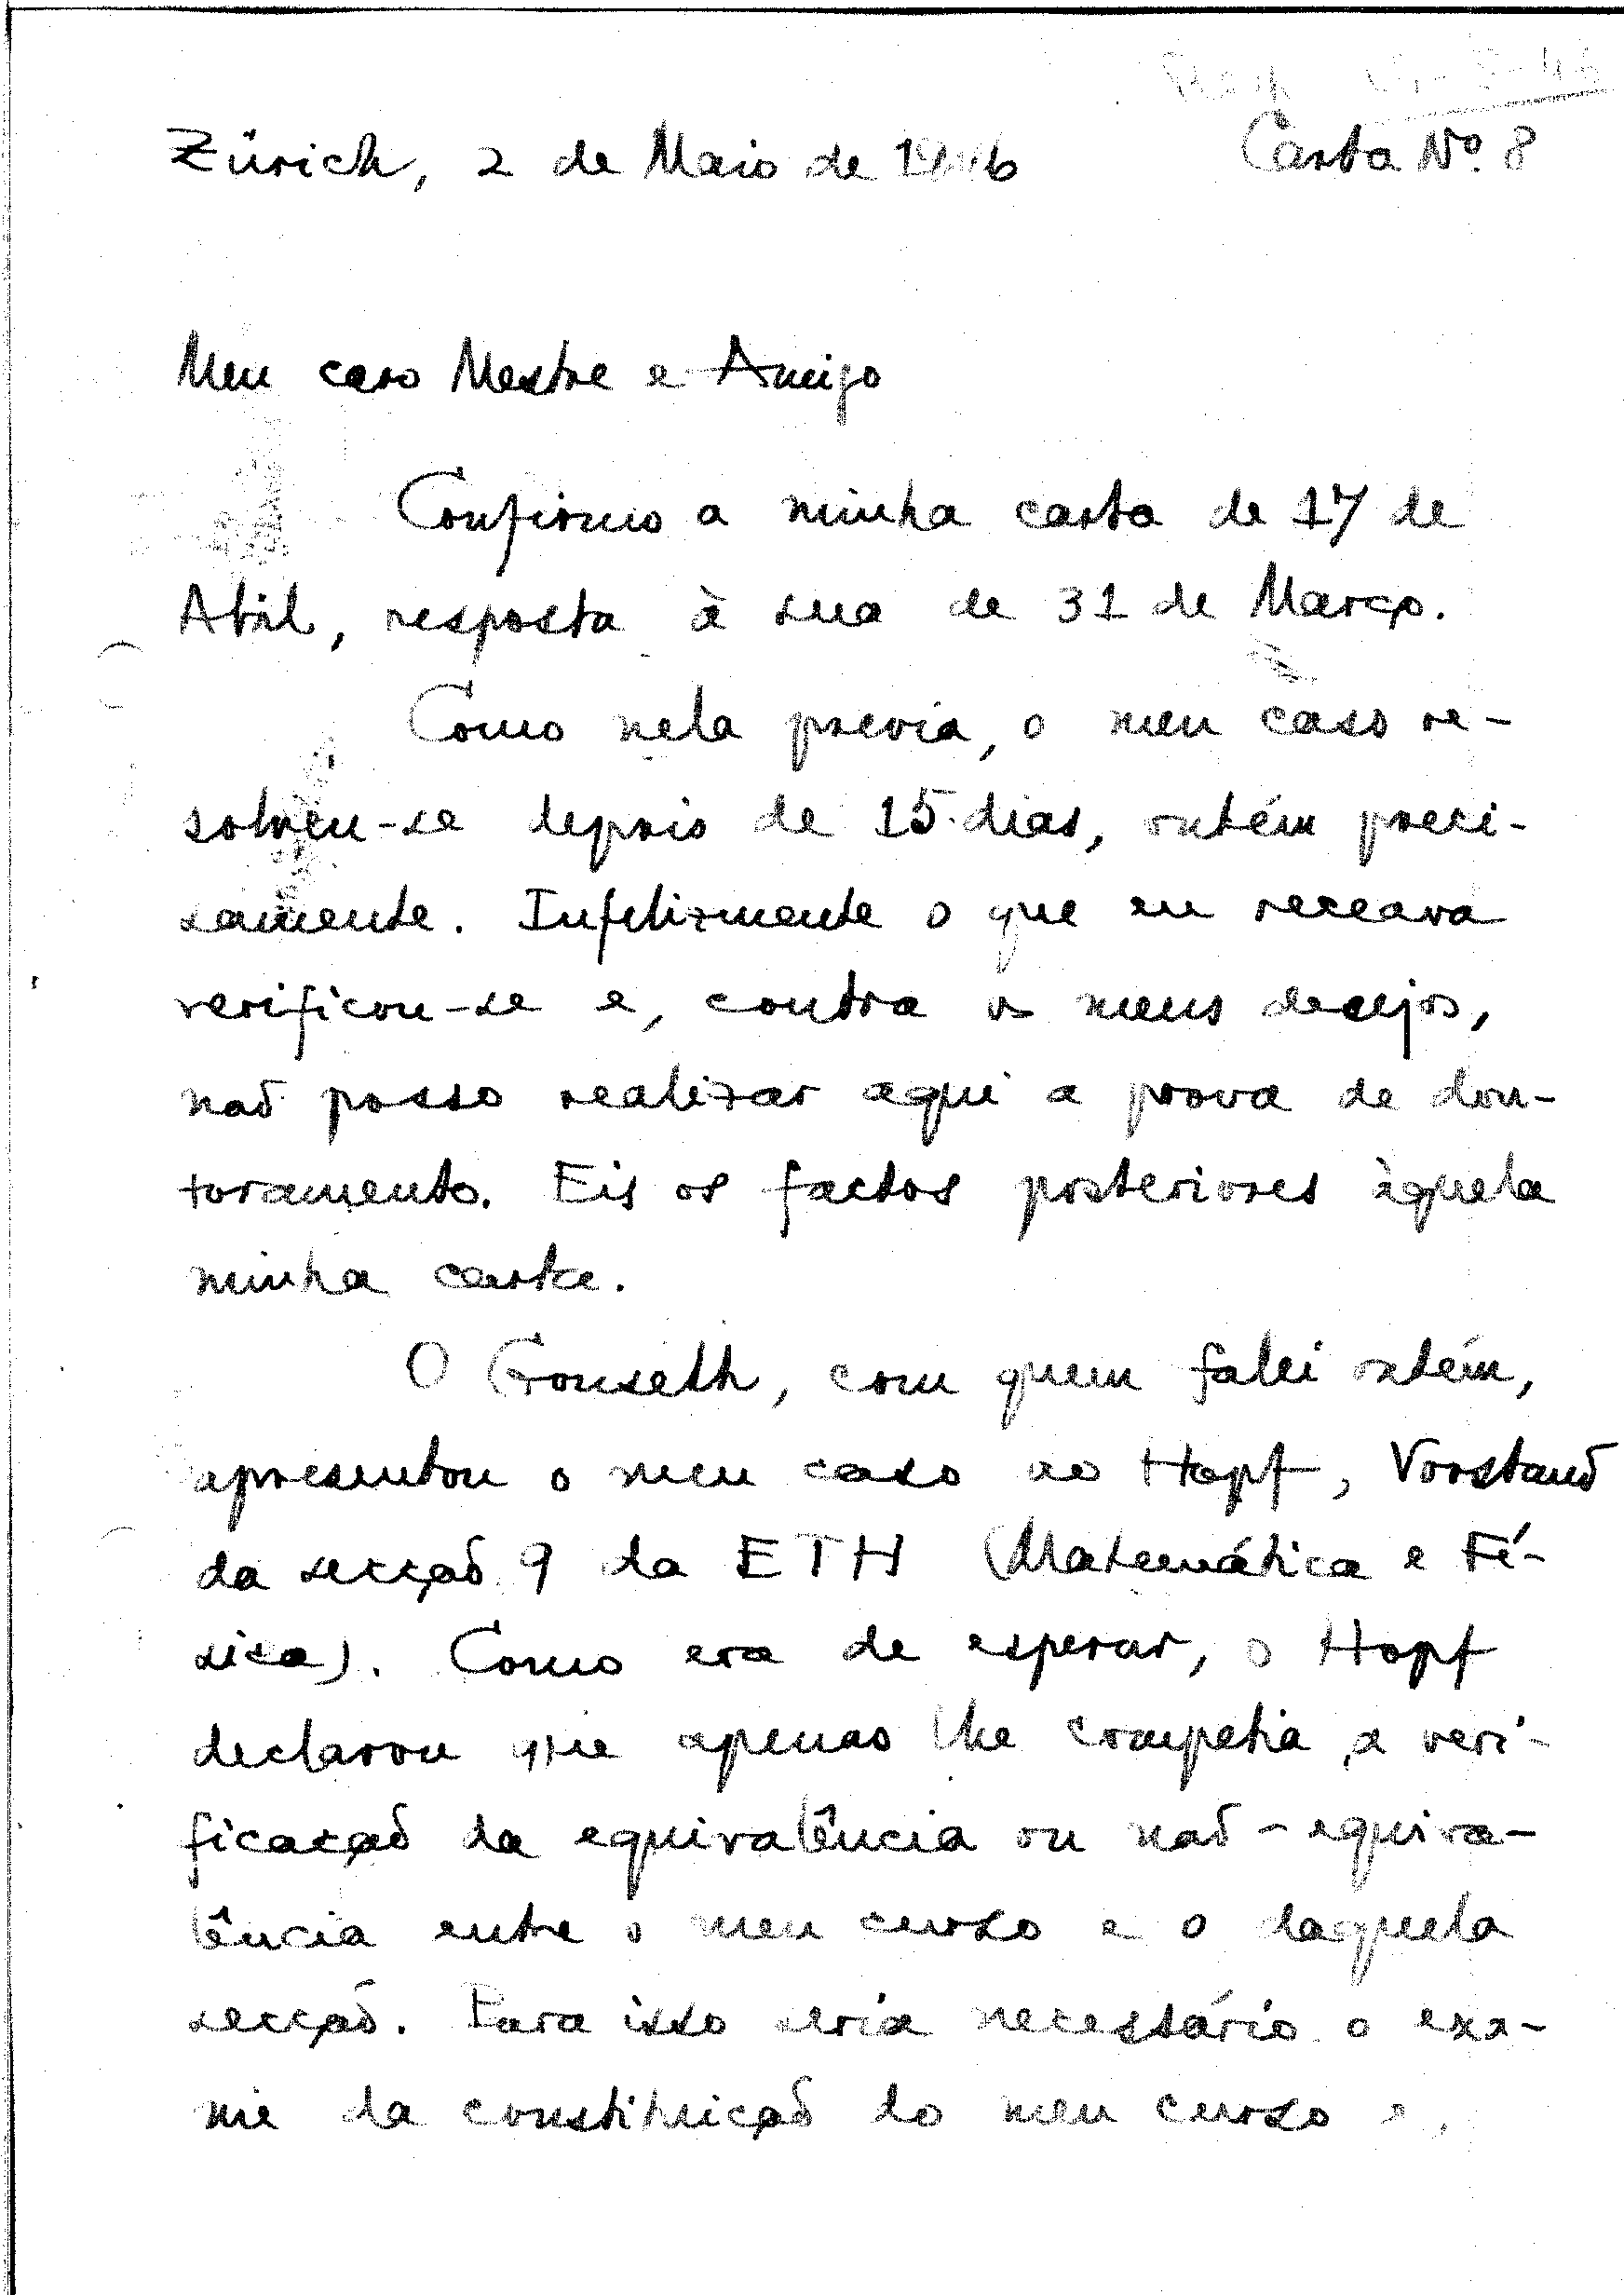 Zürich, 2 de Maio de 1946 Carta Nº 8
Meu caro Mestre e Amigo
Confirmo a minha carta de 17 de
Abril, resposta à sua de 31 de Março.
Como nela previa, o meu caso re-
solveu-se depois de 15 dias, ontém preci-
samente. Infelizmente o que eu receava
verificou-se e, contra os meus desejos,
naõ posso realizar aqui a prova de dou-
toramento. Eis os factos posteriores àquela
minha carta.
O Gonseth, com quem falei ontém,
apresentou o meu caso ao Hopf, Vorstand
da secçaõ 9 da ETH (Matemática e Fí-
sica). Como era de esperar, o Hopf
declarou que apenas lhe competia a veri-
ficaçaõ da equivalência ou naõ-equiva-
lência entre o meu curso e o daquela
secçaõ. Para isso seria necessário o exa-
me da constituiçaõ do meu curso e,